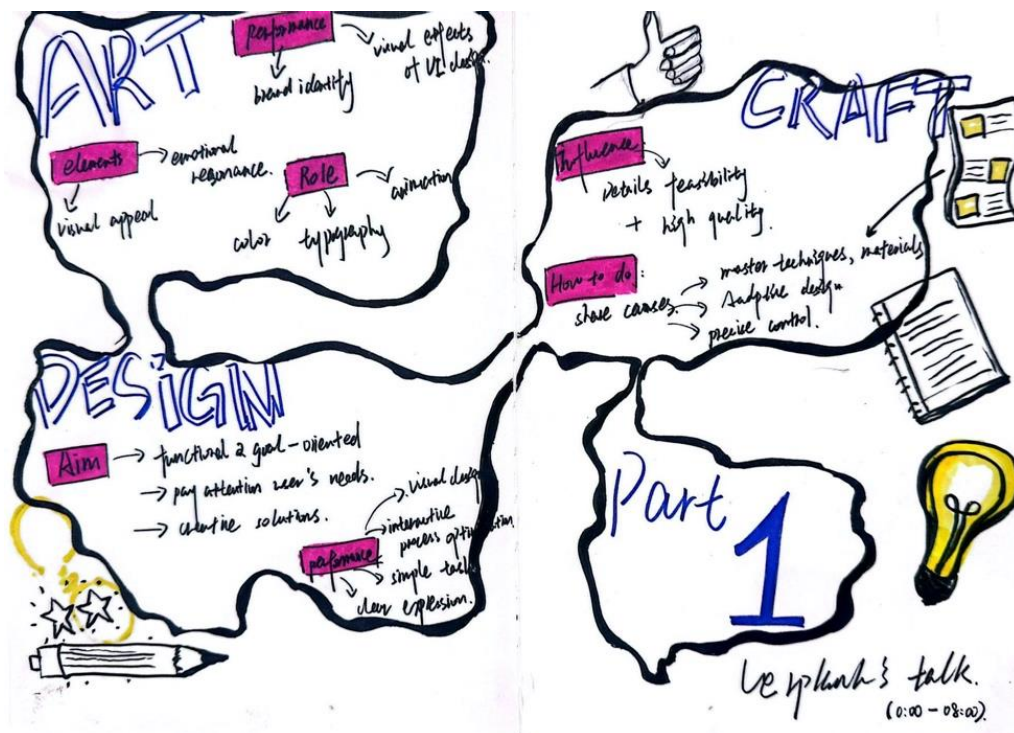 ART
performance
visual effects
of UI design.
brand identity
elements
emotional
resonance.
Role
animation
visual appeal
color
typography
CRAFT
Influence
Details feasibility
+ high quality.
How to do:
master techniques, materials
share courses.
Adaptive design
precise control.
DESIGN
Aim
functional & goal-oriented
pay attention user's needs.
creative solutions.
visual design
interactive
process optimization
performance
simple task
clear expression.
Part
1
Verplank's talk.
(0:00 - 08:00).